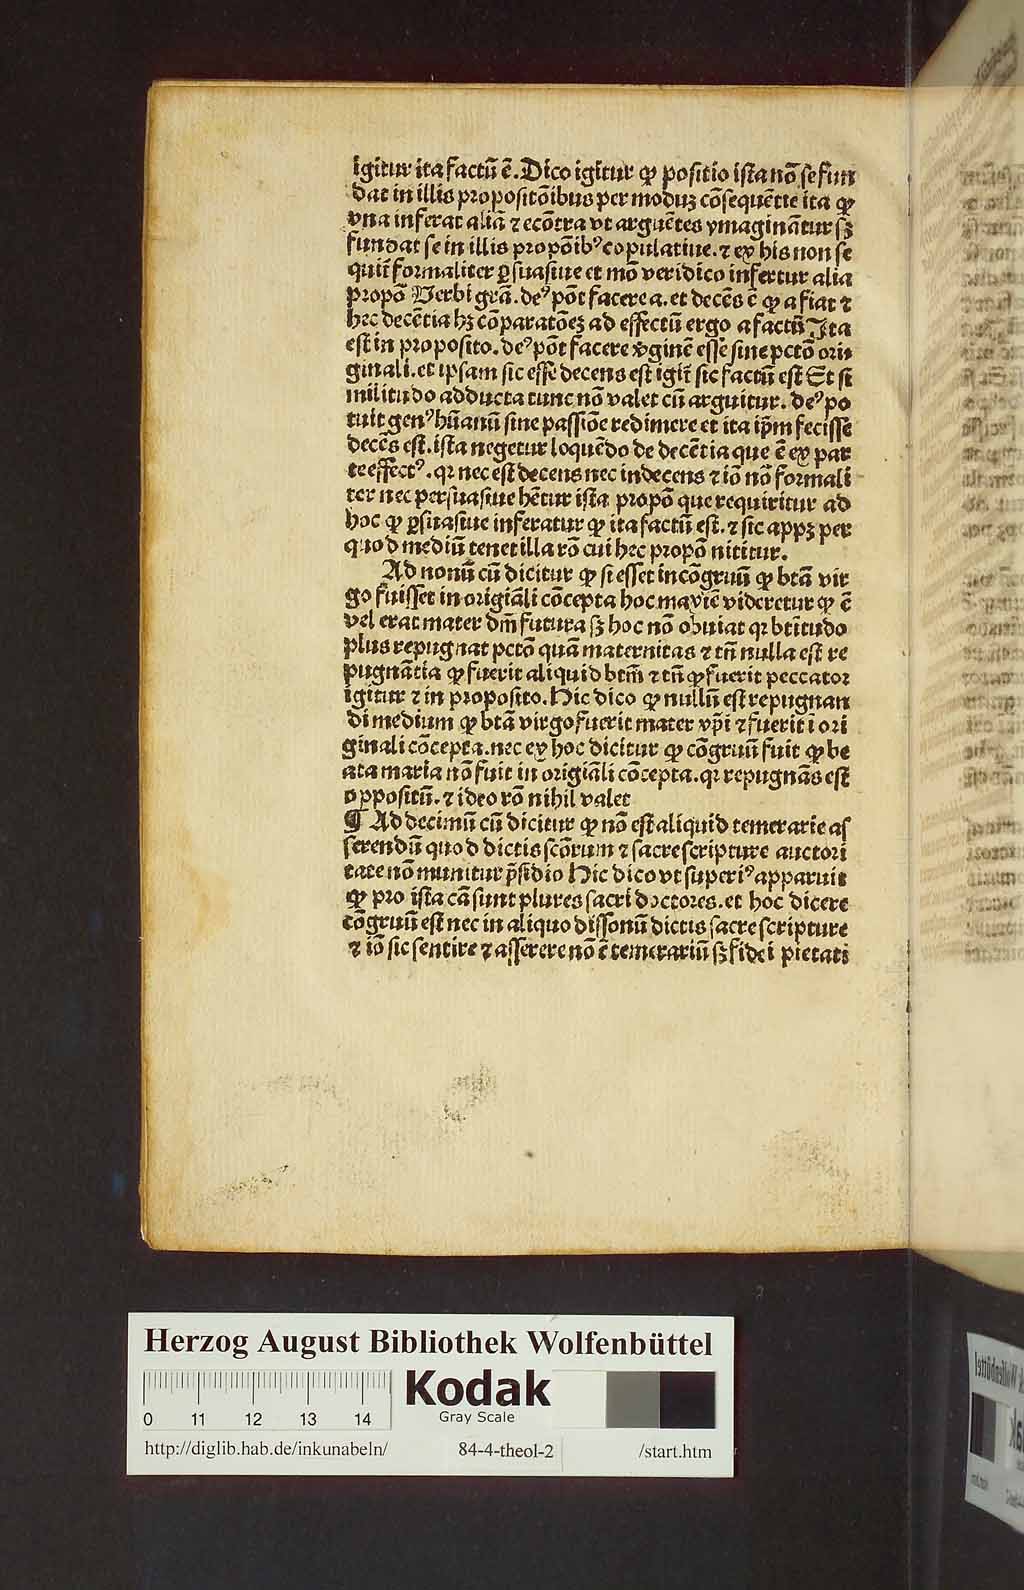 igitur ita factū ē. Dico igitur ꝙ positio ista nō se fun
dat in illis propositōibus per moduꝫ cōsequētie ita ꝙ
vna inferat aliā ⁊ ecōtra vt arguētes ymaginātur sꝫ
fundat se in illis propōibꝰ copulatiue. ⁊ ex his non se
quit̄ formaliter ꝑsuasiue et mō veridico infertur alia
propō Verbi grā. deꝰ pōt facere a. et decēs ē ꝙ a fiat ⁊
hec decētia hꝫ cōparatōeꝫ ad effectū ergo a factū Ita
est in proposito. deꝰ pōt facere v̄ginē esse sine pctō ori
ginali. et ipsam sic esse decens est igit̄ sic factū est Et si
militudo adducta tunc nō valet cū arguitur. deꝰ po
tuit genꝰ hūanū sine passiōe redimere et ita ip̄m fecisse
decēs est. ista negetur loquēdo de decētia que ē ex par
te effectꝰ. qꝛ nec est decens nec indecens ⁊ iō nō formali
ter nec persuasiue hētur ista propō que requiritur ad
hoc ꝙ ꝑsuasiue inferatur ꝙ ita factū est. ⁊ sic appꝫ per
quod mediū tenet illa rō cui hec propō nititur.
Ad nonū cū dicitur ꝙ si esset incōgruū ꝙ btā vir
go fuisset in origiāli cōcepta hoc maxīe videretur ꝙ ē
vel erat mater dn̄i futura sꝫ hoc nō obuiat qꝛ btītudo
plus repugnat pctō quā maternitas ⁊ tn̄ nulla est re
pugnātia ꝙ fuerit aliquid btm̄ ⁊ tn̄ ꝙ fuerit peccator
igitur ⁊ in proposito. Hic dico ꝙ nullū est repugnan
di medium ꝙ btā virgo fuerit mater xp̄i ⁊ fuerit i ori
ginali cōcepta. nec ex hoc dicitur ꝙ cōgruū fuit ꝙ be
ata maria nō fuit in origiāli cōcepta. qꝛ repugnās est
oppositū. ⁊ ideo rō nihil valet
¶ Ad decimū cū dicitur ꝙ nō est aliquid temerarie as
serendū quod dictis scōrum ⁊ sacre scripture auctori
tate nō munitur p̄sidio Hic dico vt superiꝰ apparuit
ꝙ pro ista cā sunt plures sacri doctores. et hoc dicere
cōgruū est nec in aliquo dissonū dictis sacre scripture
⁊ iō sic sentire ⁊ asserere nō ē temerariū sꝫ fidei pietati
Herzog August Bibliothek Wolfenbüttel
Kodak
Gray Scale
0 11 12 13 14
http://diglib.hab.de/inkunabeln/ 84-4-theol-2 /start.htm